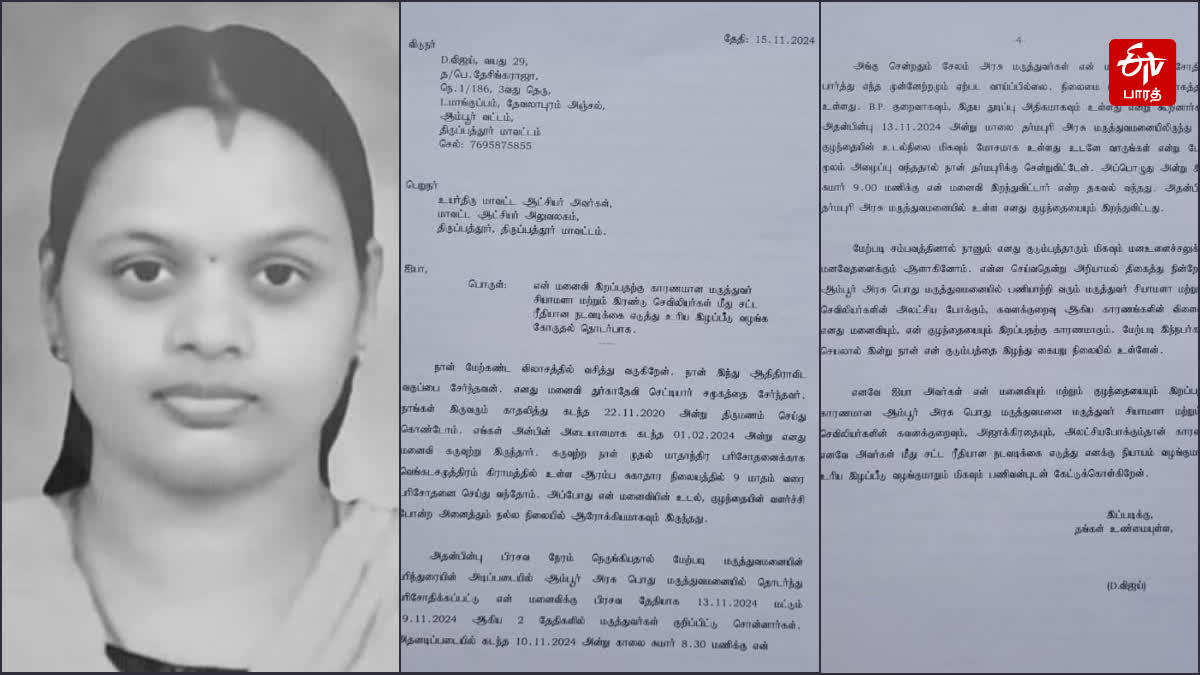 ஈடிவி
பாரத்
தேதி: 15.11.2024
விடுநர்
D.விஜய், வயது 29,
த/பெ.தேசிங்கராஜா,
நெ.1/186, 3வது தெரு,
L.மாங்குப்பம், தேவலாபுரம் அஞ்சல்,
ஆம்பூர் வட்டம்,
திருப்பத்தூர் மாவட்டம்
செல்: 7695875855
பெறுநர்
உயர்திரு மாவட்ட ஆட்சியர் அவர்கள்,
மாவட்ட ஆட்சியர் அலுவலகம்,
திருப்பத்தூர், திருப்பத்தூர் மாவட்டம்.
ஐயா,
பொருள்: என் மனைவி இறப்பதற்கு காரணமான மருத்துவர்
சியாமளா மற்றும் இரண்டு செவிலியர்கள் மீது சட்ட
ரீதியான நடவடிக்கை எடுத்து உரிய இழப்பீடு வழங்க
கோருதல் தொடர்பாக.
நான் மேற்கண்ட விலாசத்தில் வசித்து வருகிறேன். நான் இந்து ஆதிதிராவிட
வகுப்பை சேர்ந்தவன். எனது மனைவி துர்காதேவி செட்டியார் சமூகத்தை சேர்ந்தவர்.
நாங்கள் இருவரும் காதலித்து கடந்த 22.11.2020 அன்று திருமணம் செய்து
கொண்டோம். எங்கள் அன்பின் அடையாளமாக கடந்த 01.02.2024 அன்று எனது
மனைவி கருவுற்று இருந்தார். கருவுற்ற நாள் முதல் மாதாந்திர பரிசோதனைக்காக
வெங்கடசமுத்திரம் கிராமத்தில் உள்ள ஆரம்ப சுகாதார நிலையத்தில் 9 மாதம் வரை
பரிசோதனை செய்து வந்தோம். அப்போது என் மனைவியின் உடல், குழந்தையின் வளர்ச்சி
போன்ற அனைத்தும் நல்ல நிலையில் ஆரோக்கியமாகவும் இருந்தது.
அதன்பின்பு பிரசவ நேரம் நெருங்கியதால் மேற்படி மருத்துவமனையின்
ரிந்துரையின் அடிப்படையில் ஆம்பூர் அரசு பொது மருத்துவமனையில் தொடர்ந்து
பரிசோதிக்கப்பட்டு என் மனைவிக்கு பிரசவ தேதியாக 13.11.2024 மட்டும்
9.11.2024 ஆகிய 2 தேதிகளில் மருத்துவர்கள் குறிப்பிட்டு சொன்னார்கள்.
அதனடிப்படையில் கடந்த 10.11.2024 அன்று காலை சுமார் 8.30 மணிக்கு என்
-4-
அங்கு சென்றதும் சேலம் அரசு மருத்துவர்கள் என்
பார்த்து எந்த முன்னேற்றமும் ஏற்பட வாய்ப்பில்லை. நிலைமை
உள்ளது. B.P. குறைவாகவும், இதய துடிப்பு அதிகமாகவும் உள்ளது என்று கூறினார்க
அதன்பின்பு 13.11.2024 அன்று மாலை தர்மபுரி அரசு மருத்துவமனையிலிருந்து
குழந்தையின் உடல்நிலை மிகவும் மோசமாக உள்ளது உடனே வாருங்கள் என்று
மூலம் அழைப்பு வந்ததால் நான் தர்மபுரிக்கு சென்றுவிட்டேன். அப்பொழுது அன்று
சுமார் 9.00 மணிக்கு என் மனைவி இறந்துவிட்டார் என்ற தகவல் வந்தது. அதன்பி
தர்மபுரி அரசு மருத்துவமனையில் உள்ள எனது குழந்தையையும் இறந்துவிட்டது.
மேற்படி சம்பவத்தினால் நானும் எனது குடும்பத்தாரும் மிகவும் மனஉளைச்சலுக்
மனவேதனைக்கும் ஆளாகினோம். என்ன செய்வதென்று அறியாமல் திகைத்து நின்றே
ஆம்பூர் அரசு பொது மருத்துவமனையில் பணியாற்றி வரும் மருத்துவர் சியாமளா மற்று
செவிலியர்களின் அலட்சிய போக்கும், கவனக்குறைவு ஆகிய காரணங்களின் விளை
எனது மனைவியும், என் குழந்தையையும் இறப்பதற்கு காரணமாகும். மேற்படி இந்நபர்க
செயலால் இன்று நான் என் குடும்பத்தை இழந்து கையறு நிலையில் உள்ளேன்.
எனவே ஐயா அவர்கள் என் மனைவியும் மற்றும் குழந்தையையும் இறப்பத
காரணமான ஆம்பூர் அரசு பொது மருத்துவமனை மருத்துவர் சியாமளா மற்று
செவிலியர்களின் கவனக்குறைவும், அஜாக்கிரதையும், அலட்சியபோக்கும்தான் காரண
எனவே அவர்கள் மீது சட்ட ரீதியான நடவடிக்கை எடுத்து எனக்கு நியாயம் வழங்குமா
உரிய இழப்பீடு வழங்குமாறும் மிகவும் பணிவன்புடன் கேட்டுக்கொள்கிறேன்.
இப்படிக்கு,
தங்கள் உண்மையுள்ள,
(D.விஜய்)